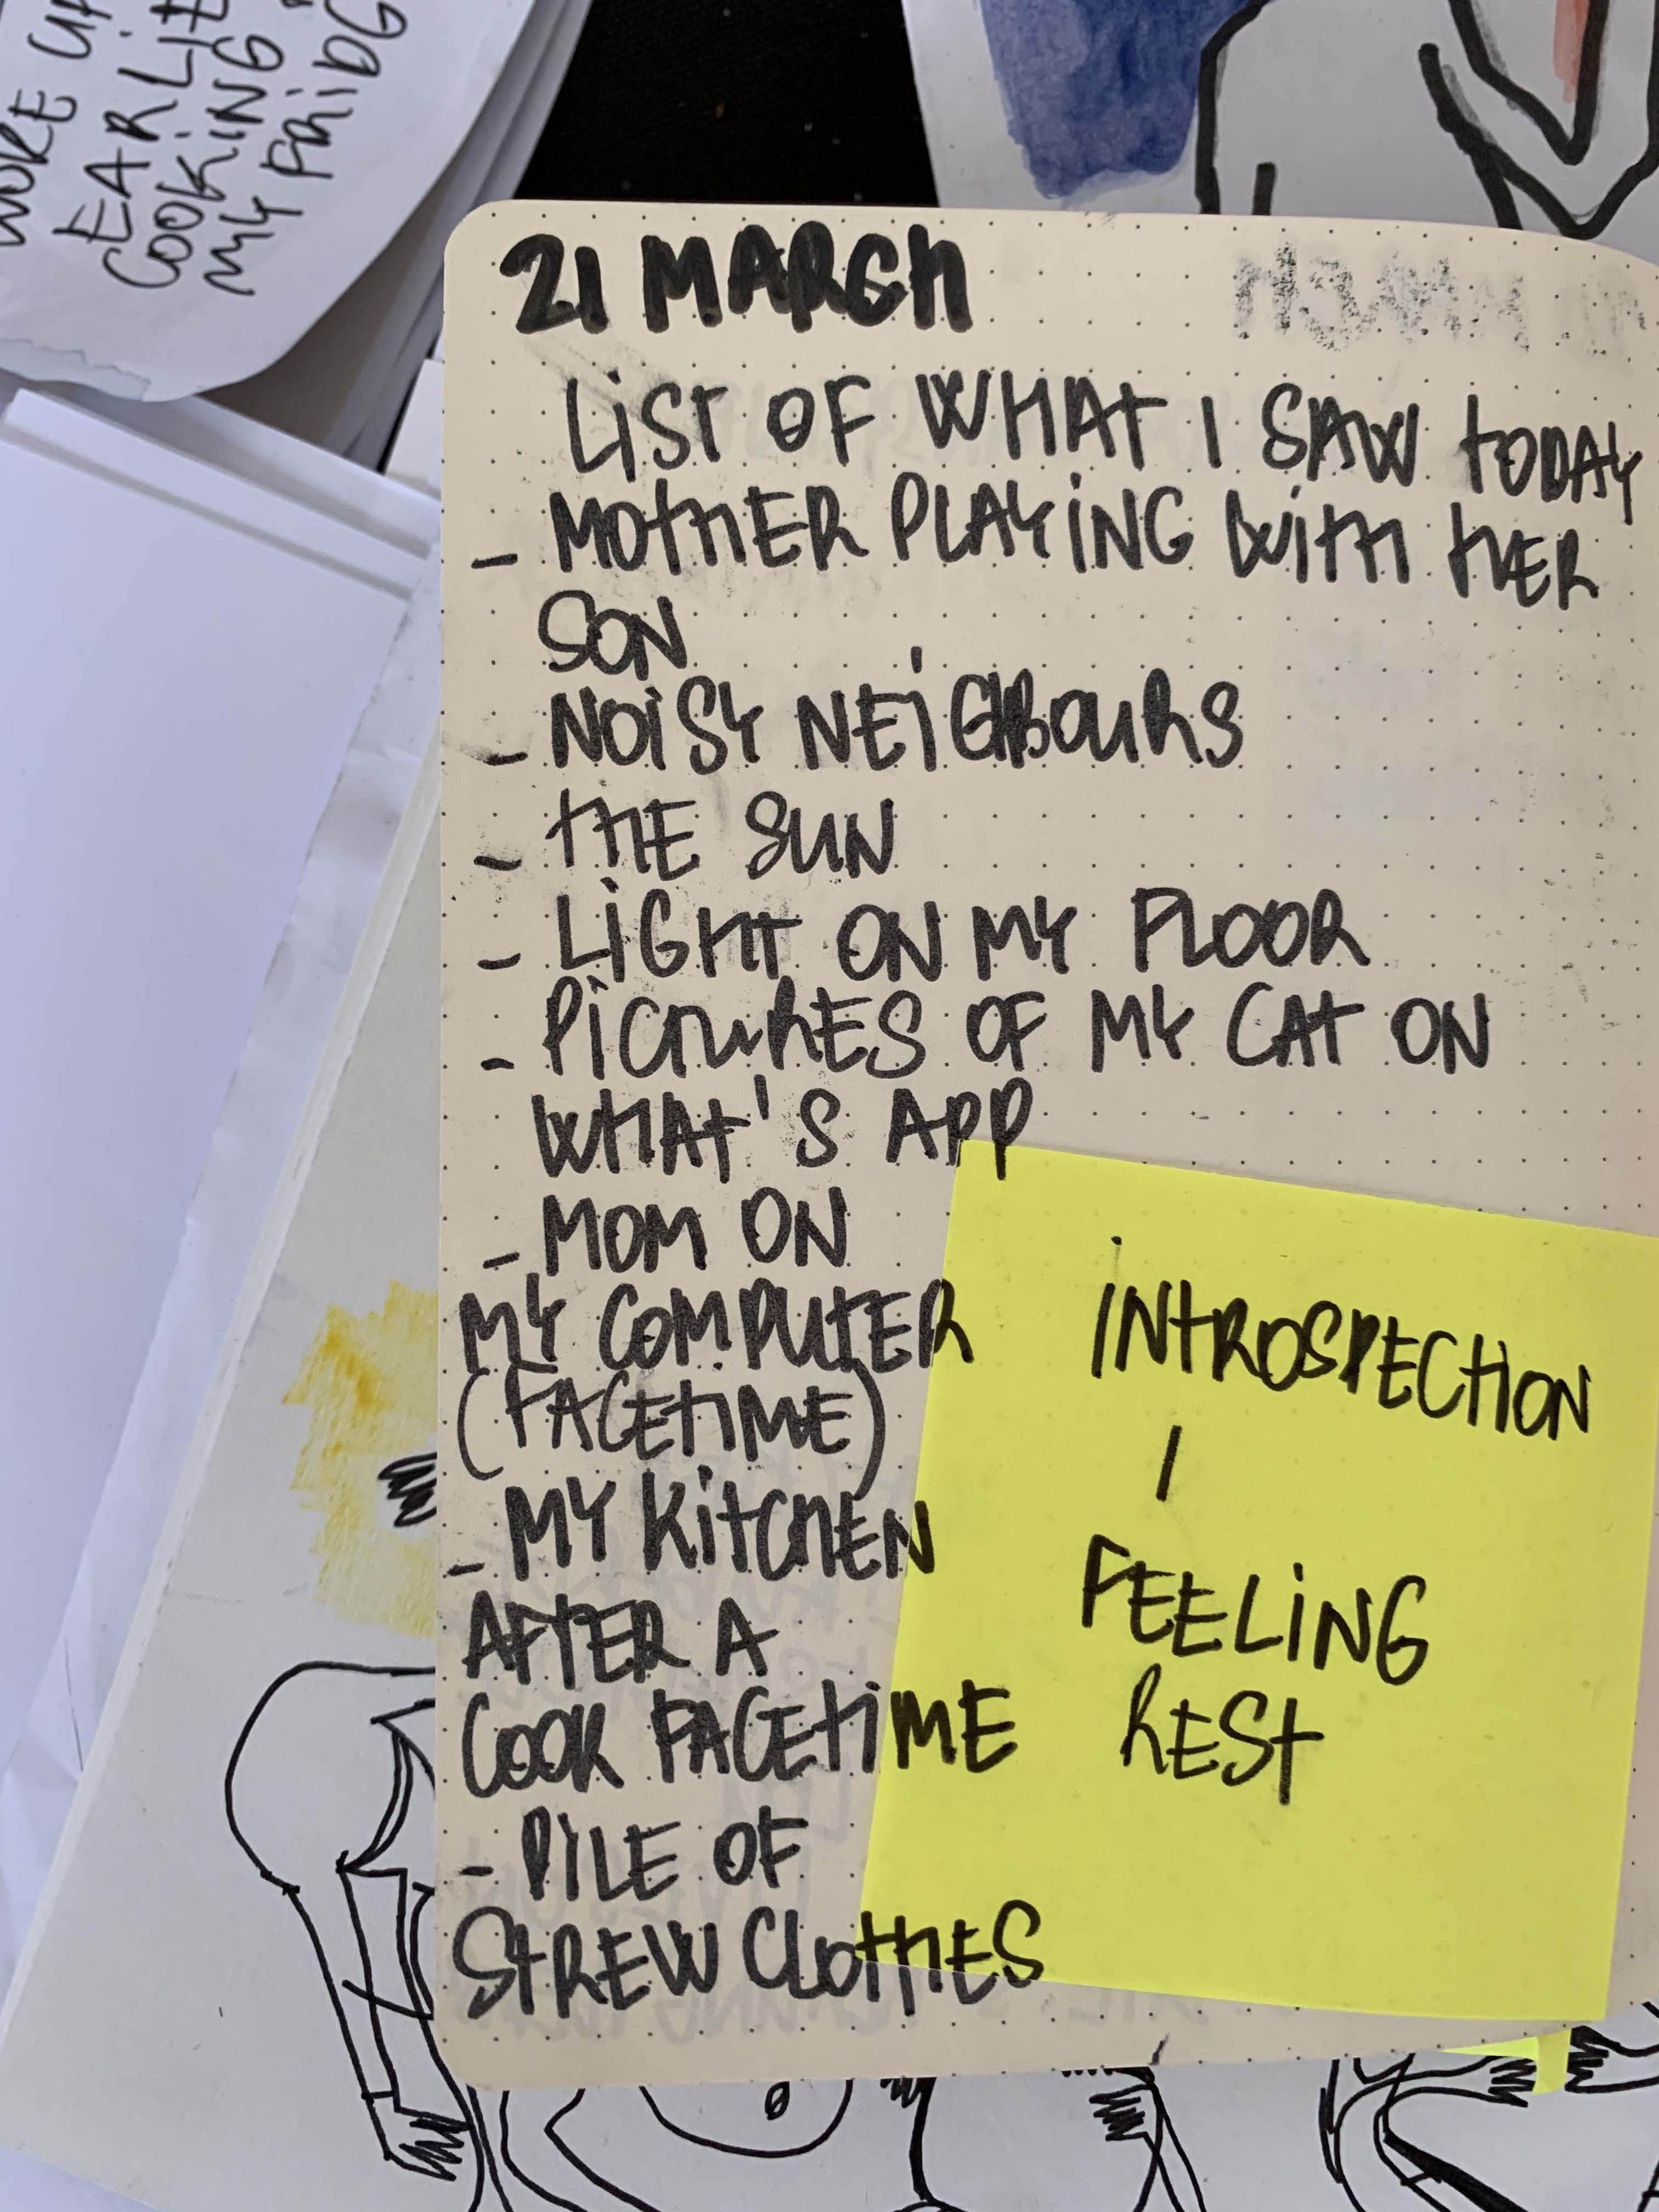 EARLIE
COOKING
MY FRIDG
21 MARCH
LIST OF WHAT I SAW TODAY
- MOTHER PLAYING WITH HER
SON
- NOISY NEIGHBOURS
- THE SUN
- LIGHT ON MY FLOOR
- PICTURES OF MY CAT ON
WHAT'S APP
- MOM ON
MY COMPUTER
(FACETIME)
- MY KITCHEN
AFTER A
COOK FACETIME
- PILE OF
STREW CLOTHES
INTROSPECTION
/
FEELING
REST